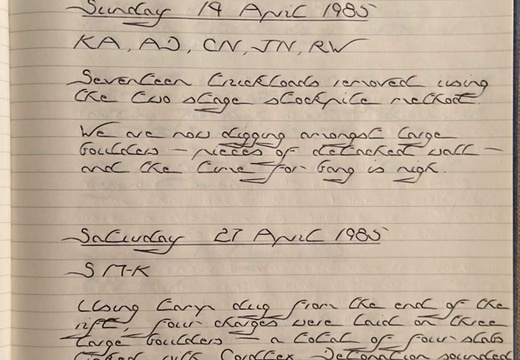 Sunday 14 April 1985
KA, AJ, CN, JN, RW
Seventeen truckloads removed using
the two stage stockpile method.
We are now digging amongst large
boulders – pieces of detached wall –
and the time for bang is nigh.
Saturday 27 April 1985
SM-K
Using Earyn dug from the end of the
rift, four charges were laid on three
large boulders – a total of four slabs
linked with Cordtex. Detonation sounded